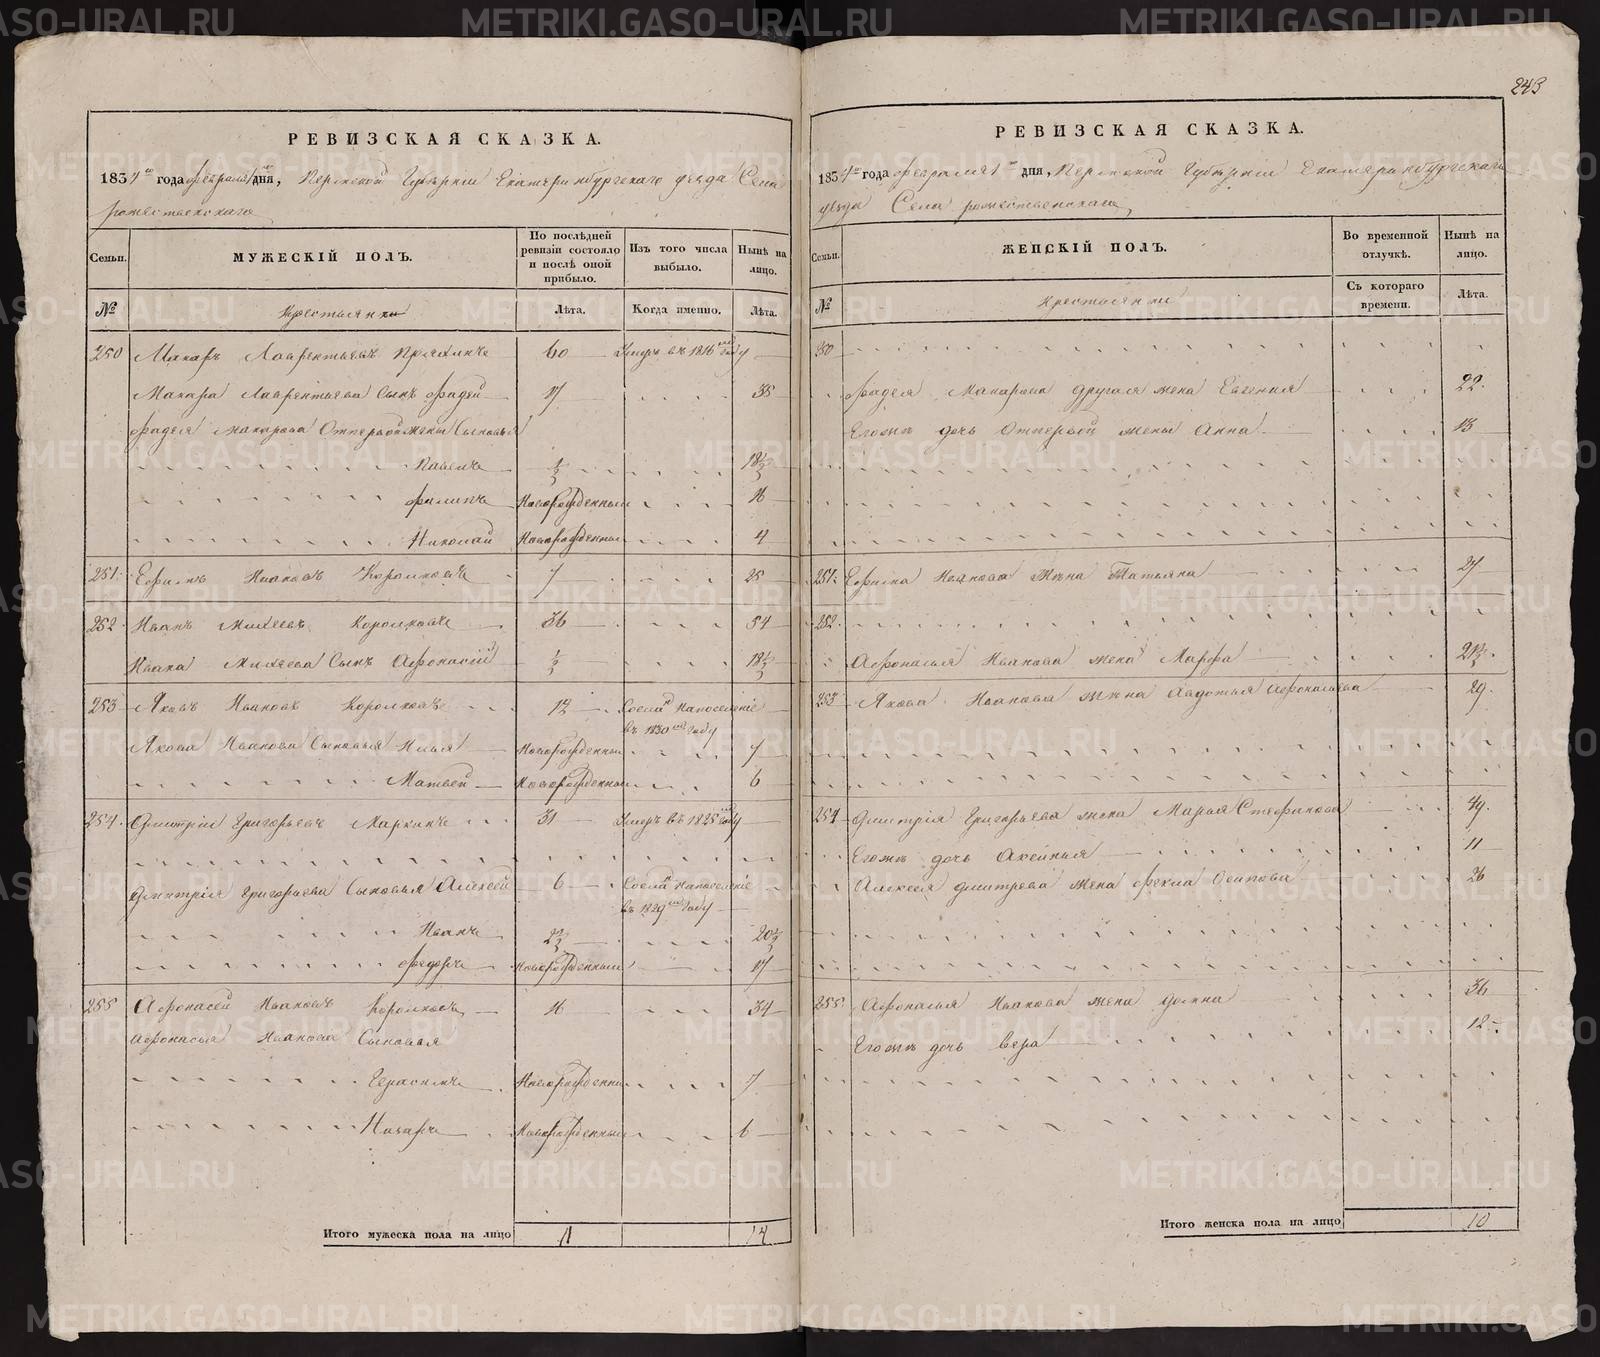 243
РЕВИЗСКАЯ СКАЗКА.
1834го года февраля 1го дня, Пермской Губернии Екатеринбургского уезда Села
рожественскаго
Семьи.
МУЖЕСКІЙ ПОЛЪ.
По послѣдней ревизіи состояло и послѣ оной прибыло.
Изъ того числа выбыло.
Нынѣ на лицо.
№
Лѣта.
Когда именно.
Лѣта.
250 Макаръ Лаврентьевъ 60 Умеръ въ 1816мъ году
Макара Лаврентьева Сынъ Фадей 17 35
Фадея Макарова Отпервой жены Сыновья
Павелъ ½ 18½
Филипъ Новорожденный 16
Николай Новорожденный 4
251 Ефимъ Ивановъ Королковъ 7 25
252 Иванъ Михеевъ Королковъ 36 54
Ивана Михеева Сынъ Афонасій ½ 18½
253 Яковъ Ивановъ Королковъ 12 Сосланъ Напоселеніе
въ 1830мъ году
Якова Иванова Сыновья Илья Новорожденный 7
Матвей Новорожденный 6
254 Дмитрій Григорьевъ 31 Умеръ въ 1825мъ году
Дмитрія Григорьева Сыновья Алексей 6 Сосланъ Напоселеніе
въ 1829мъ году
Иванъ 20
Федоръ Новорожденный 17
255 Афонасей Ивановъ Королковъ 16 34
Афонасья Иванова Сыновья
Герасимъ Новорожденный 7
Назаръ Новорожденный 6
Итого мужеска пола на лицо 11 14
РЕВИЗСКАЯ СКАЗКА.
1834го года февраля 1го дня, Пермской Губерніи Екатеринбургскаго
уезда Села рожественскаго
Семьи.
ЖЕНСКІЙ ПОЛЪ.
Во временной отлучкѣ.
Нынѣ на лицо.
№
Крестьянки
Съ котораго времени.
Лѣта.
250
Фадея Макарова другая жена Евгения 22
Егожъ дочь Отпервой жены Анна 13
251 Ефима Иванова жена Татьяна 27
252
Афонасья Иванова жена Марфа 21½
253 Якова Иванова жена Авдотья Афонасьева 29
254 Дмитрія Григорьева жена Марья Стефанова 49
Егожъ дочь Аксинья 11
Алексея Дмитрева жена Фекла Осипова 26
255 Афонасья Иванова жена Домна 36
Егожъ дочь Вера 12
Итого женска пола на лицо 10
METRIKI.GASO-URAL.RU